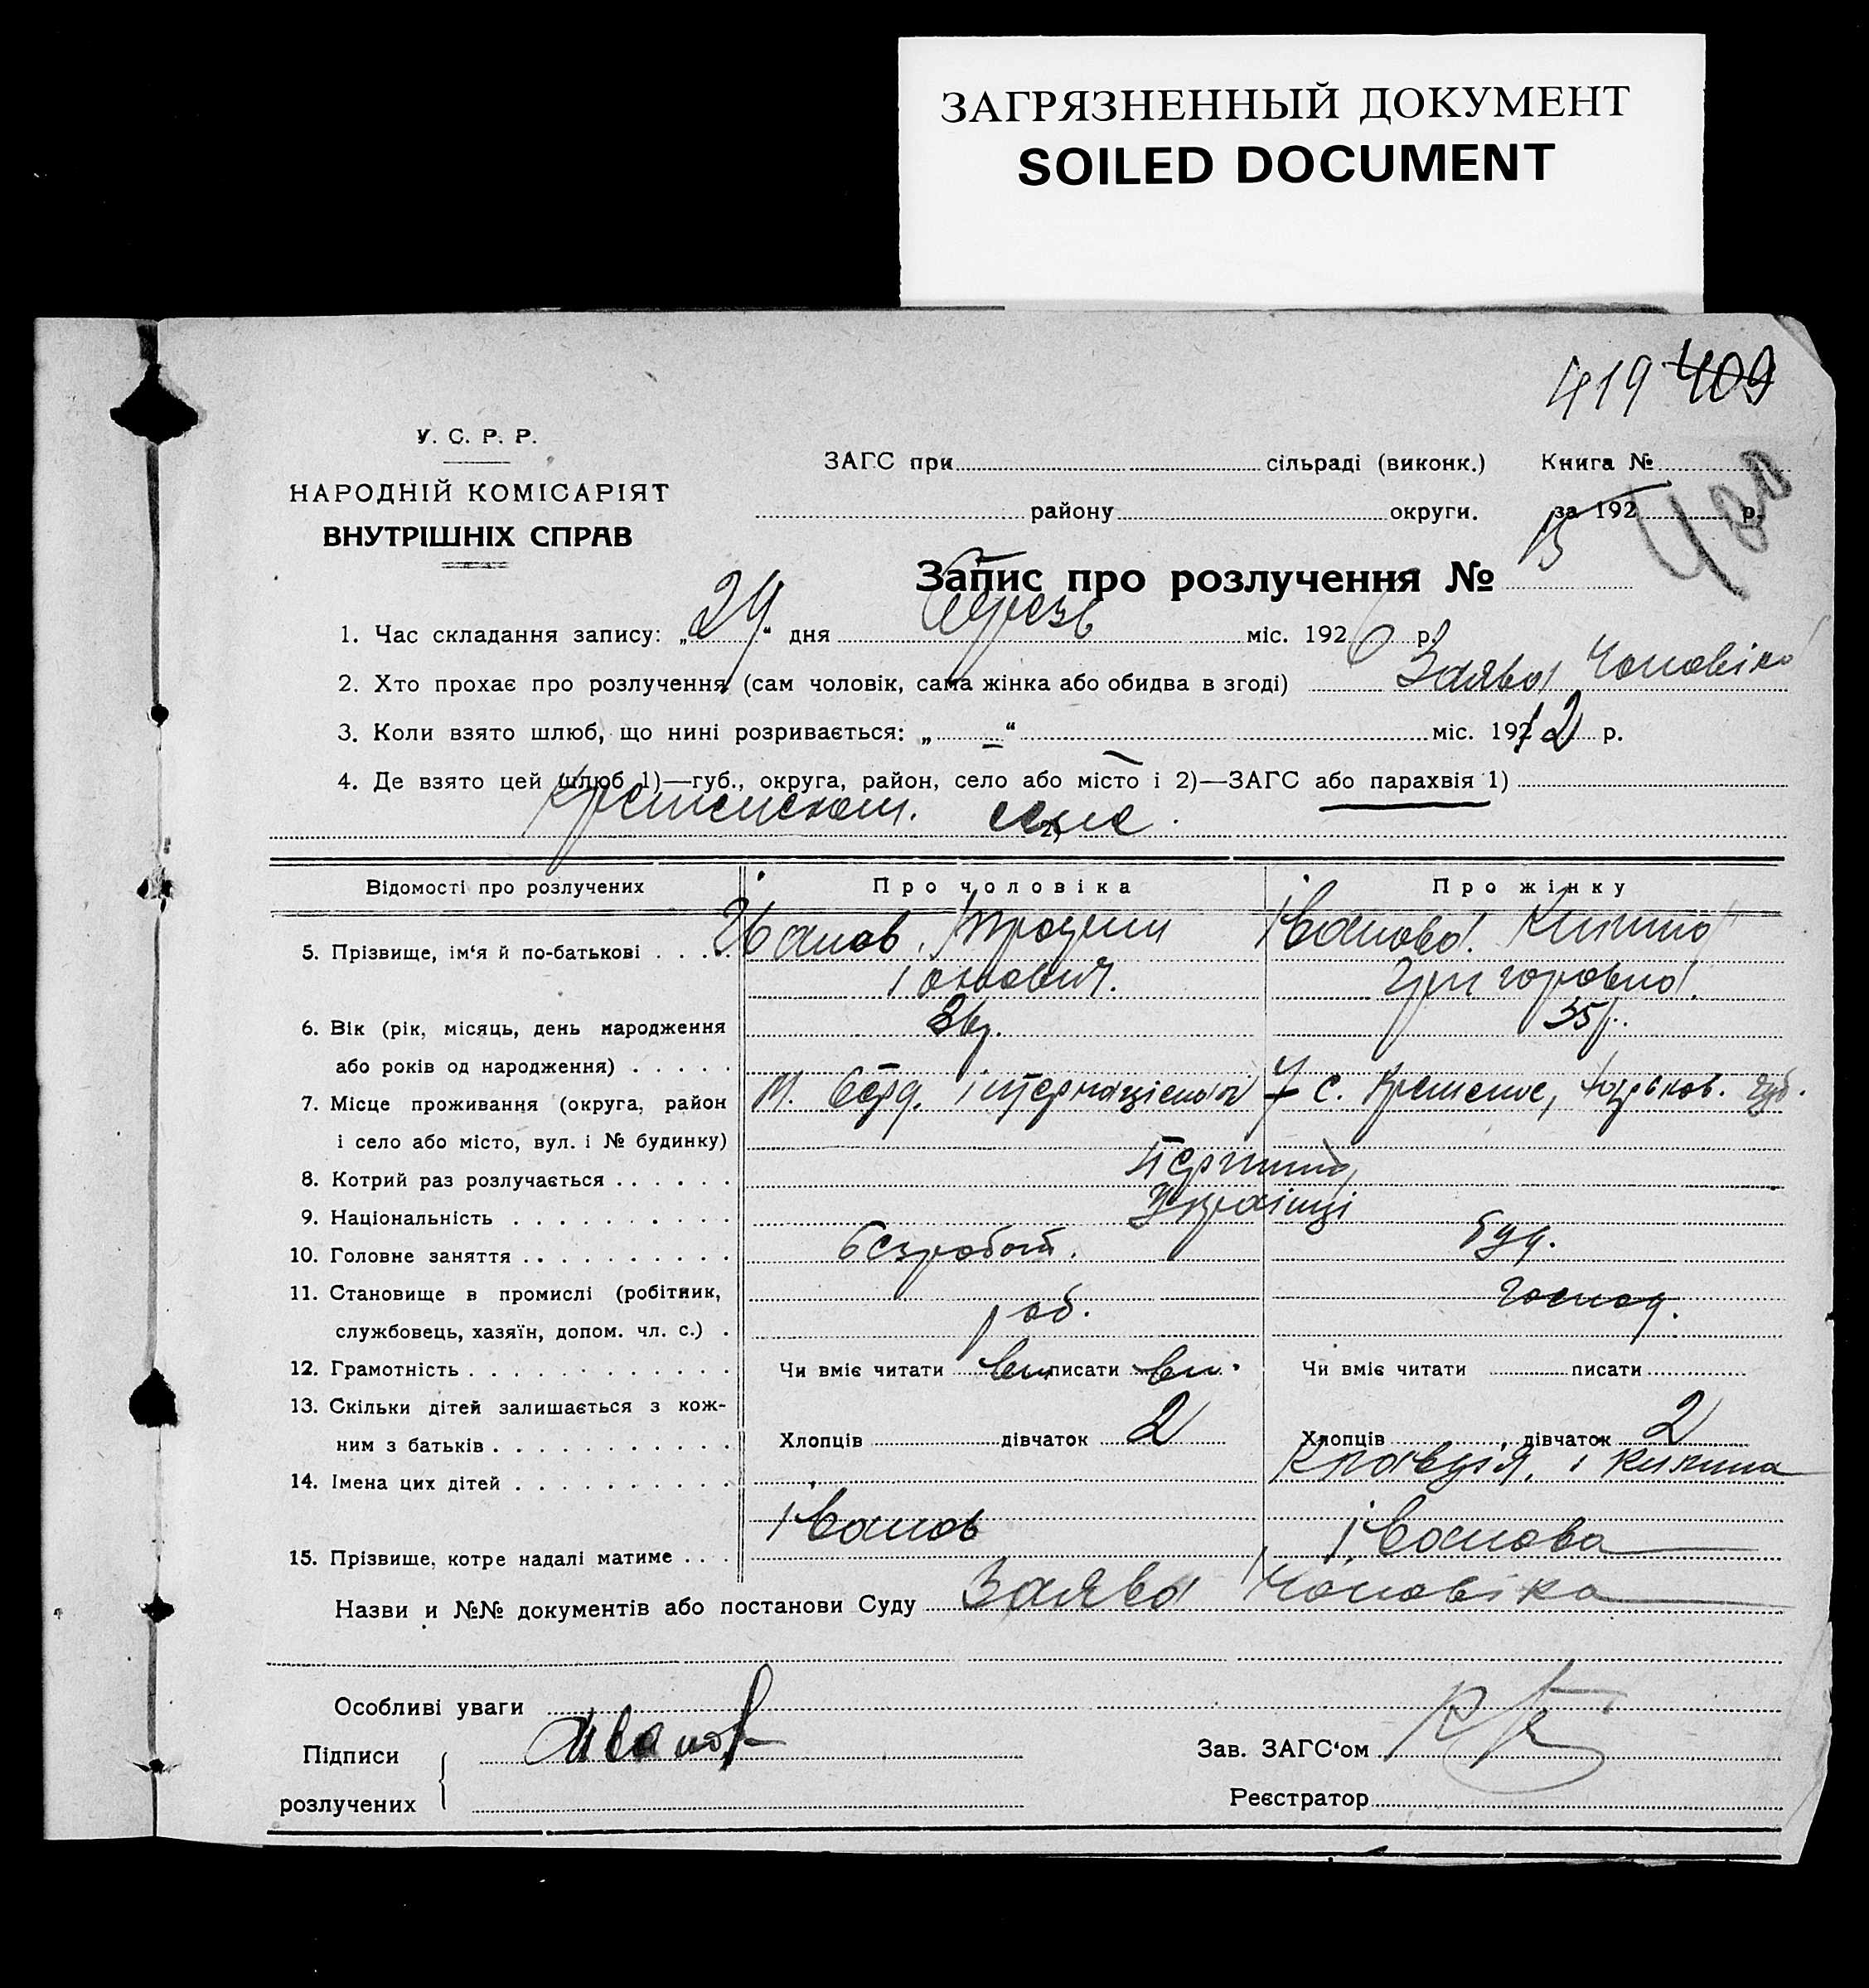 ЗАГРЯЗНЕННЫЙ ДОКУМЕНТ
SOILED DOCUMENT
419 409
У. С. Р. Р.
НАРОДНІЙ КОМІСАРІЯТ
ВНУТРІШНІХ СПРАВ
ЗАГС при сільраді (виконк.) Книга №
району округи. за 192 р.
Запис про розлучення № 15
1. Час складання запису: „24“ дня міс. 1926 р.
2. Хто прохає про розлучення (сам чоловік, сама жінка або обидва в згоді) Заява Чоловіка
3. Коли взято шлюб, що нині розривається: „ – “ – міс. 1912 р.
4. Де взято цей шлюб 1)—губ., округа, район, село або місто і 2)—ЗАГС або парахвія 1)
2)
Відомості про розлучених Про чоловіка Про жінку
5. Прізвище, ім‘я й по-батькові Іванов Іванова Килина
Григоровна
6. Вік (рік, місяць, день народження 36р. 35р.
або років од народження)
7. Місце проживання (округа, район М. Берд. Інтернаціональн 7 с.
і село або місто, вул. і № будинку)
8. Котрий раз розлучається Перший
9. Національність Українці
10. Головне заняття безробот.
11. Становище в промислі (робітник, роб. господ.
службовець, хазяїн, допом. чл. с.)
12. Грамотність Чи вміє читати вм писати вм. Чи вміє читати писати
13. Скільки дітей залишається з кож-
ним з батьків Хлопців дівчаток 2 Хлопців дівчаток 2
14. Імена цих дітей Клавдія і Килина
15. Прізвище, котре надалі матиме Іванов Іванова
Назви и №№ документів або постанови Суду Заява Чоловіка
Особливі уваги
Підписи Иванов Зав. ЗАГС‘ом
розлучених Реєстратор